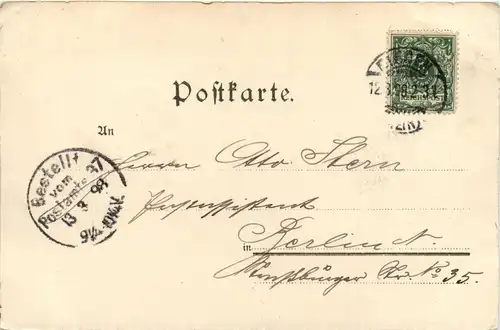 Postkarte.
An
Herrn Otto Stern
Postassistent
in Berlin N.
Str. No 35.
Bestellt
vom
Postamte 37
13 3 98
9¼-10¼V.
12.3.98.2-3N.